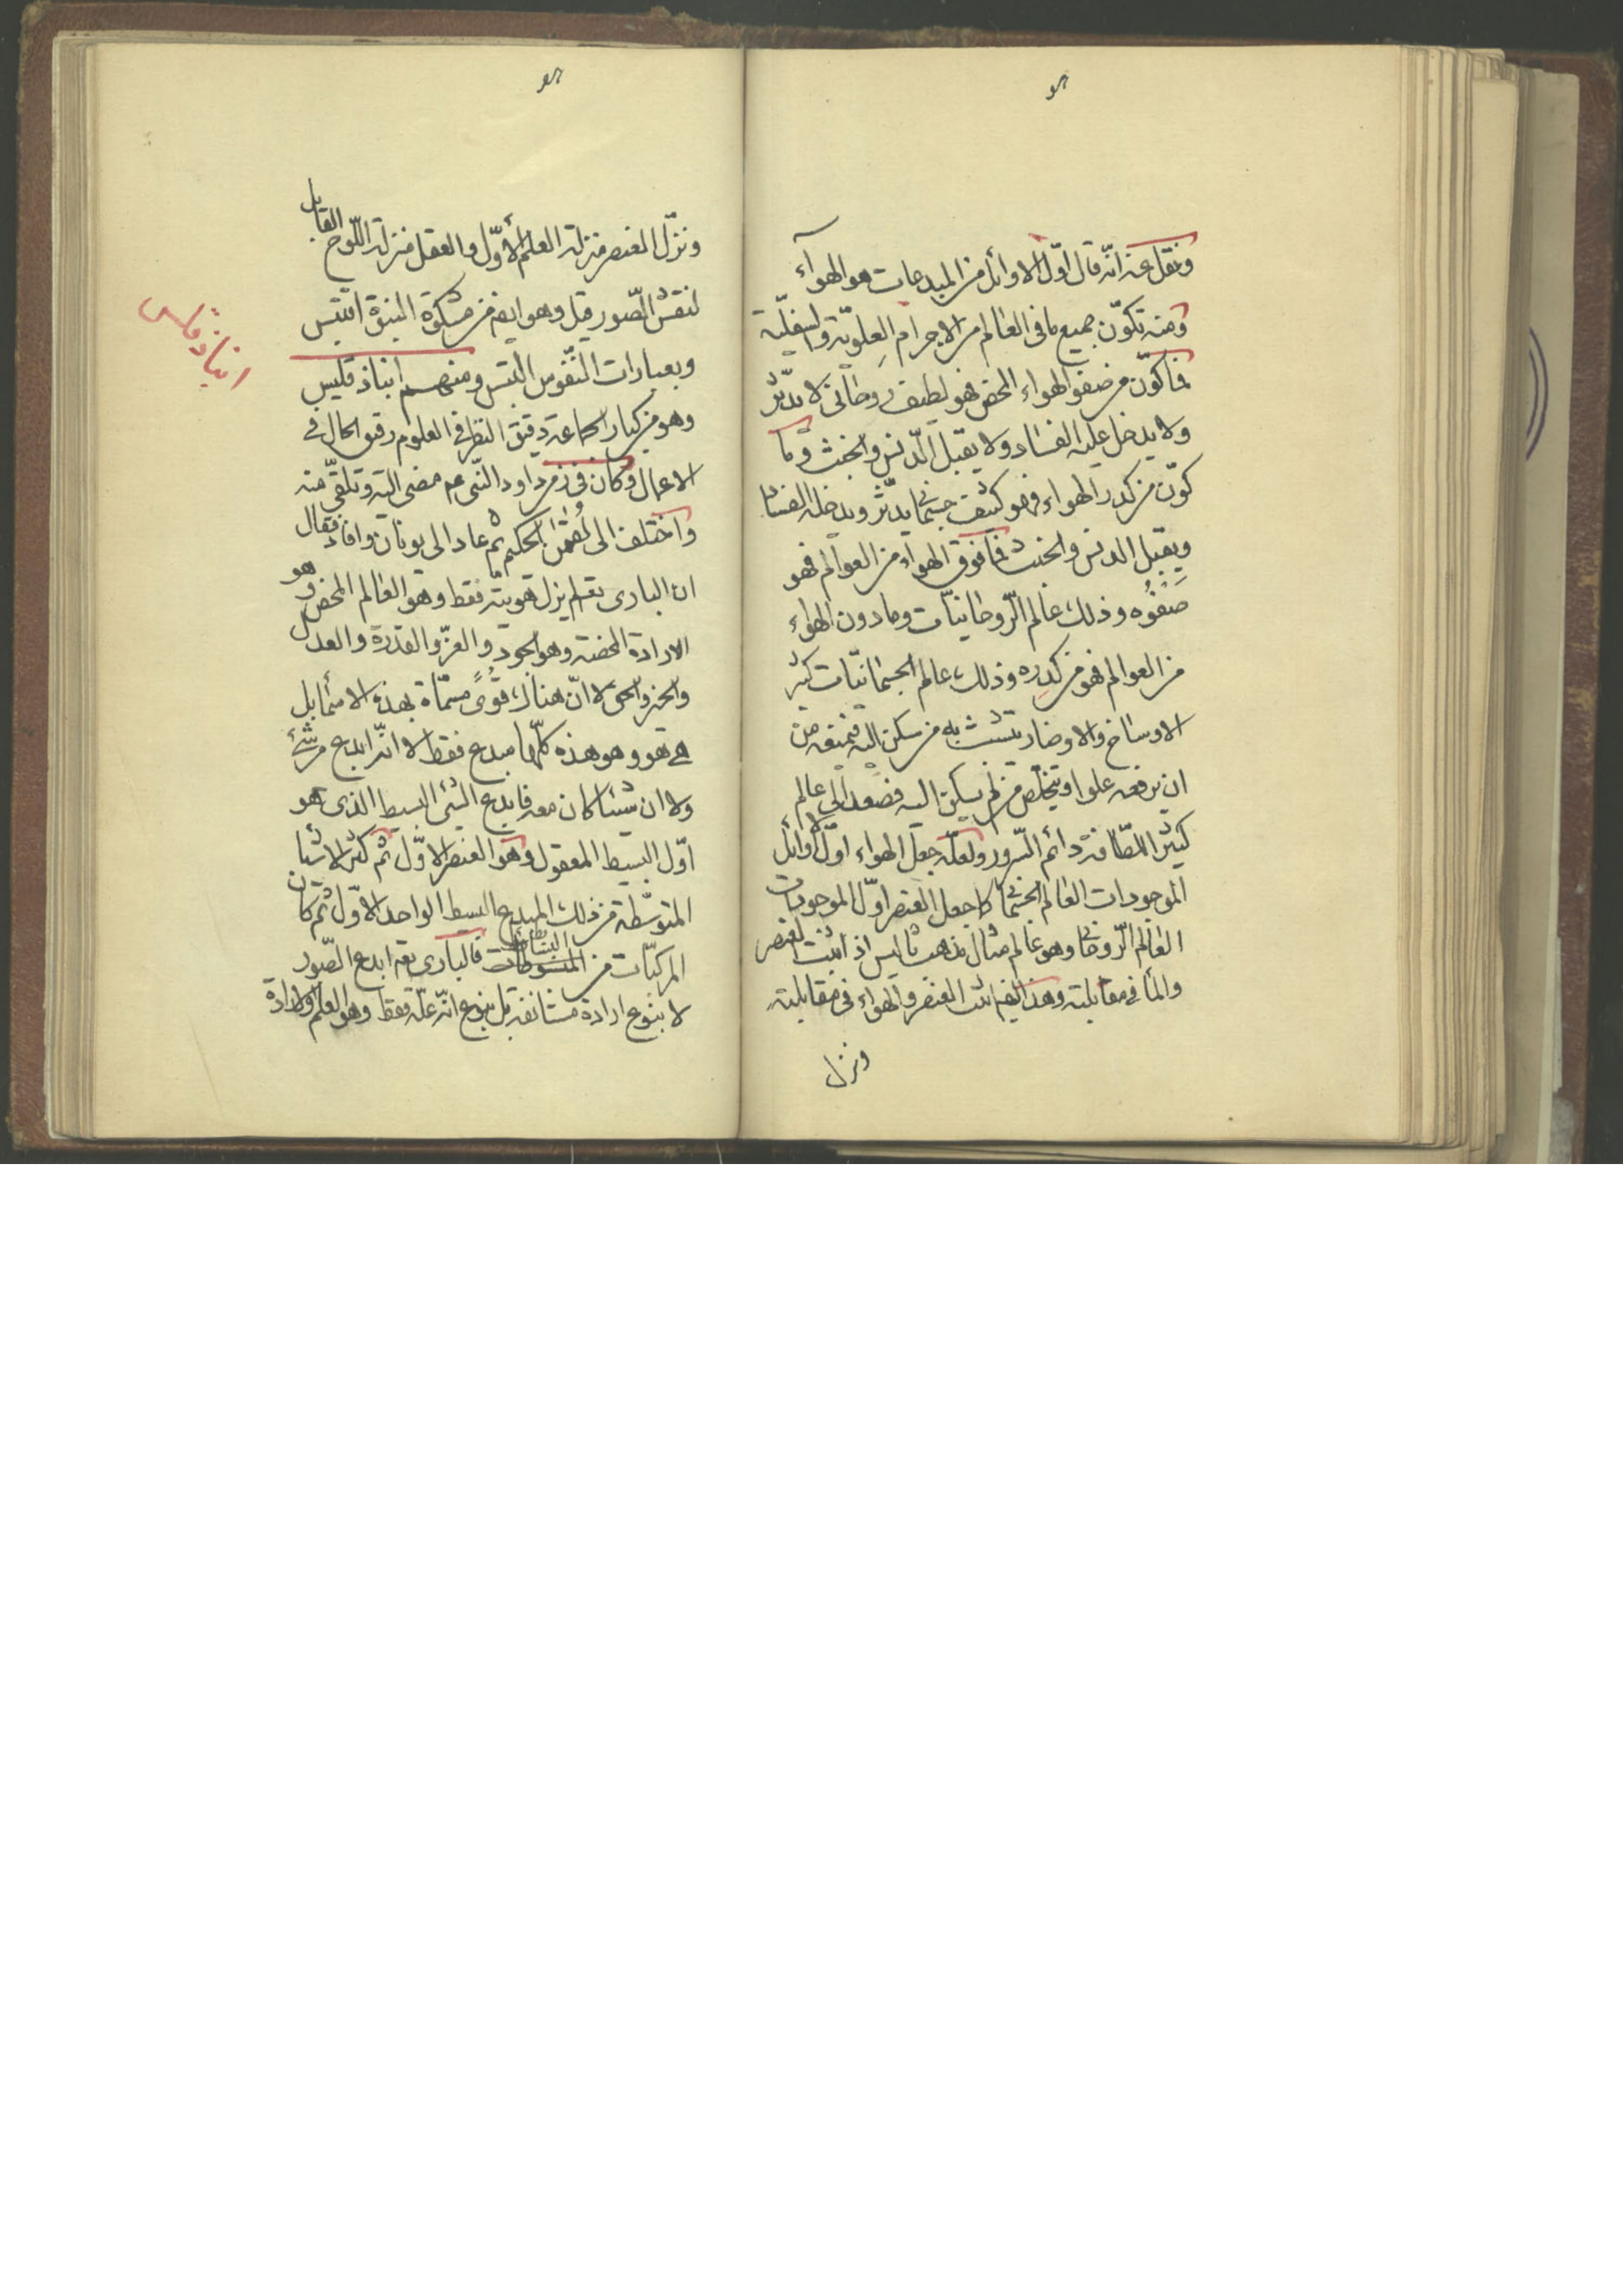 هو
ونقل عنه انّه قال اوّل الاوائل من المبدعات هو الهواء
ومنه تكوّن جميع ما فى العالم من الاجرام العلويّة والسفليّة
فما كوّن من صفو الهواء المحض فهو لطيف روحانى لا يدثر
ولا يدخل عليه الفساد ولا يقبل الدّنس والخبث وما
كوّن من كدر الهواء فهو كثيف جسمانى يدثر ويدخله الفساد
ويقبل الدنس والخبث فما فوق الهواء من العوالم فهو
صَفْوُه وذلك عالم الرّوحانيّات وما دون الهواء
من العوالم فهو من كدره وذلك عالم الجسمانيّات كثير
الاوساخ والاوضار يتشبث به من سكن اليه فيمنعه من
ان يرفعه علوا ويتخلّص من لم يسكن اليه فصعد الى عالم
كثير اللطافة دائم السّرور ولعلّه جعل الهواء اوّل الاوائل
لموجودات العالم الجسمانى كما جعل العنصر اوّل الموجودات
العالم الرّوحانى وهو على مثال مذهب ثاليس اذ اثبت العنصر
والماء فى مقابلته وهذا ايضا اثبت العنصر والهواء فى مقابلته
ونزل
هو
ونزّل العنصر منزلة القلم الأوّل والعقل منزلة اللّوح القابل
لنقش الصّور قيل وهو ايضا من مشكوة النبوّة اقتبس
وبعبارات النّفوس التبس ومنهم ابناذقليس
ابناذقلس
وهو من كبار الجماعة دقيق النظر فى العلوم رقيق الحال فى
الاعمال وكان فى زمن داود النّبى عم مضى اليه وتلقّى منه
واختلف الى لقمن الحكيم ثم عاد الى يونان وافاد فقال
ان البارى تع لم يزل هويته فقط وهو العالم المحض وهو
الارادة المحضة وهو الجود والعزّ والقدرة والعدل
والخير والحق لا انّ هناك قوًى مسمّاة بهذه الاسماء بل
هى هو وهو هذه كلّها مبدع فقط لا انّه ابدع من شئ
ولا ان شيئا كان معه فابدع الشئ البسيط الذى هو
اوّل البسيط المعقول وهو العنصر الاوّل ثم كثر الاشيا
المتوسّطة من ذلك المبدع البسيط الواحد الاوّل ثم كان
المركبّات من المبسوطات البسائط فالبارى تع ابدع الصّور
لا بنوع ارادة مستانفة بل بنوع انّه علّة فقط وهو العلم والارادة